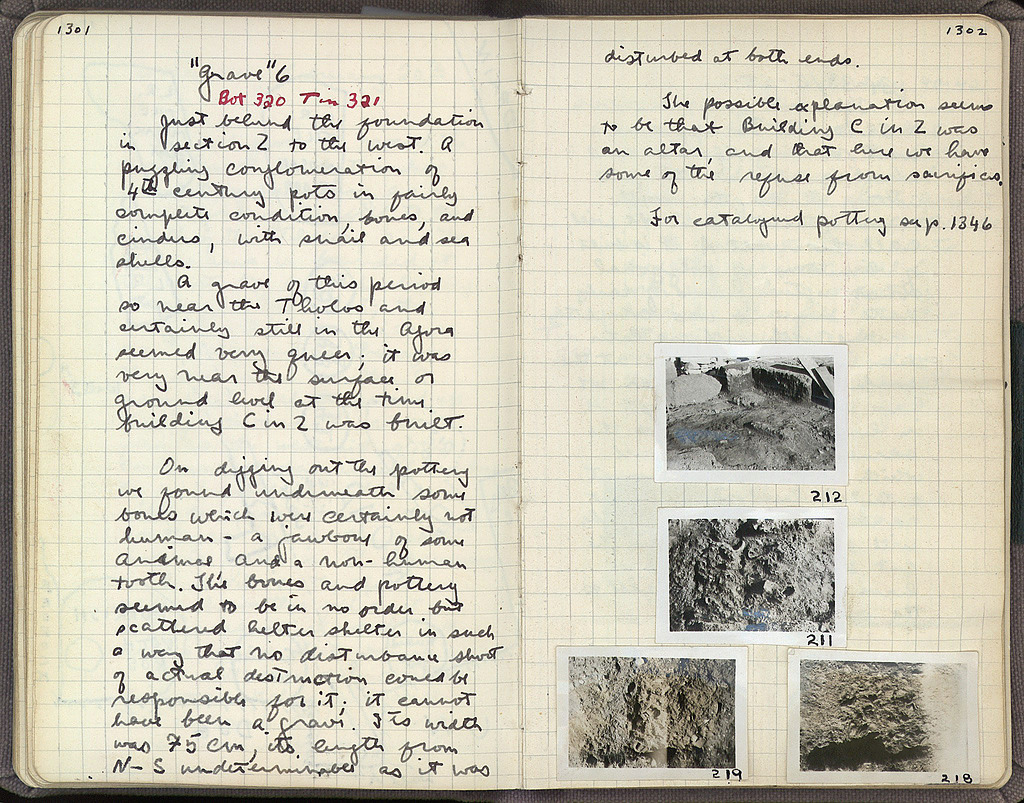 1301
"Grave" 6
Bot 320 Tin 321
Just behind the foundation
in section Z to the west. A
puzzling conglomeration of
4th century pots in fairly
complete condition, bones, and
cinders, with snail and sea
shells.
A grave of this period
so near the Tholos and
certainly still in the Agora
seemed very queer; it was
very near the surface or
ground level at the time
building C in Z was built.
On digging out the pottery
we found underneath some
bones which were certainly not
human - a jawbone of some
animal and a non-human
tooth. The bones and pottery
seemed to be in no order but
scattered helter skelter in such
a way that no disturbance short
of actual destruction could be
responsible for it; it cannot
have been a grave. Its width
was 75 cm, its length from
N-S undeterminable as it was
1302
disturbed at both ends.
The possible explanation seems
to be that Building C in Z was
an altar, and that here we have
some of the refuse from sacrifices.
For catalogued pottery see p. 1346
212
211
219
218